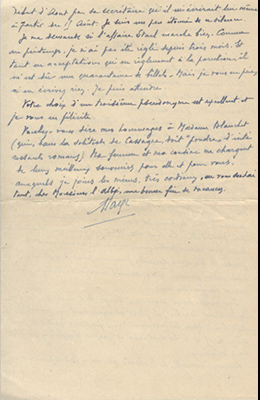 début d'Août par sa secrétaire qui m'écrirait lui-même
à partir du 11 Août. Je suis un peu étonné de
Je me demande si l'affaire Etant marche bien. Comme
au printemps, je n'ai pas été réglé depuis trois mois. Et
tant en acceptations qu'en règlement à la parution il
lui est dû une quarantaine de billets. Mais je vous en prie,
n'en écrivez rien. Je puis attendre.
Votre choix d'un troisième pseudonyme est excellent et
je vous en félicite.
Veuillez vous dire mes hommages à Madame Blanchet
(qui, dans la solitude de Cassagne, doit "pondre" d'inté-
ressants romans). Ma femme et ma cousine me chargent
de leurs meilleurs souvenirs pour elle et pour vous,
auxquels je joins les miens, très cordiaux, en vous souhai-
tant, cher Monsieur l'Abbé, une bonne fin de vacances.